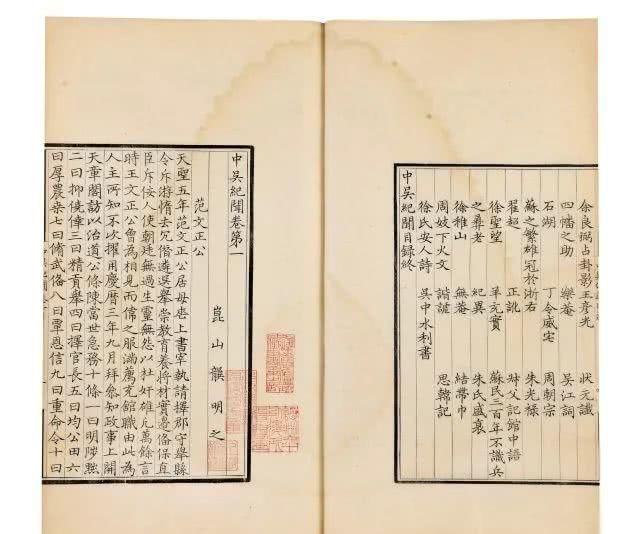 余良弼占卦影 王彦光 狀元讖
四幡之助 樂菴 吳江詞
石湖 丁令威宅 周朝宗
蘇之繁雄冠於浙右 朱光祿
翟超 正訛 父記館中語
徐聖望 羊充實 蘇民三百年不識兵
之彝老 紀異 朱氏盛衰
徐稚山 無菴 結帶巾
周妓下火文 諧謔 思韓記
徐氏安人詩 吳中水利書
中吳紀聞目錄終
中吳紀聞卷第一
崑山龔明之
范文正公
天聖五年范文正公居母喪上書宰執請擇郡守舉縣
令斥游惰去冗僭遴選舉崇教育養將材實邊俻保直
臣斥佞人使朝廷無過生靈無怨以杜奸雄凡萬餘言
時王文正公曾為相見而偉之服滿薦充館職由此為
人主所知不次擢用慶曆三年九月拜叅知政事上開
天章閣訪以治道公條陳當世急務十條一曰明陟黜
二曰抑僥倖三曰精貢舉四曰擇官長五曰均公田六
曰厚農桒七曰脩武俻八曰覃恩信九曰重命令十曰